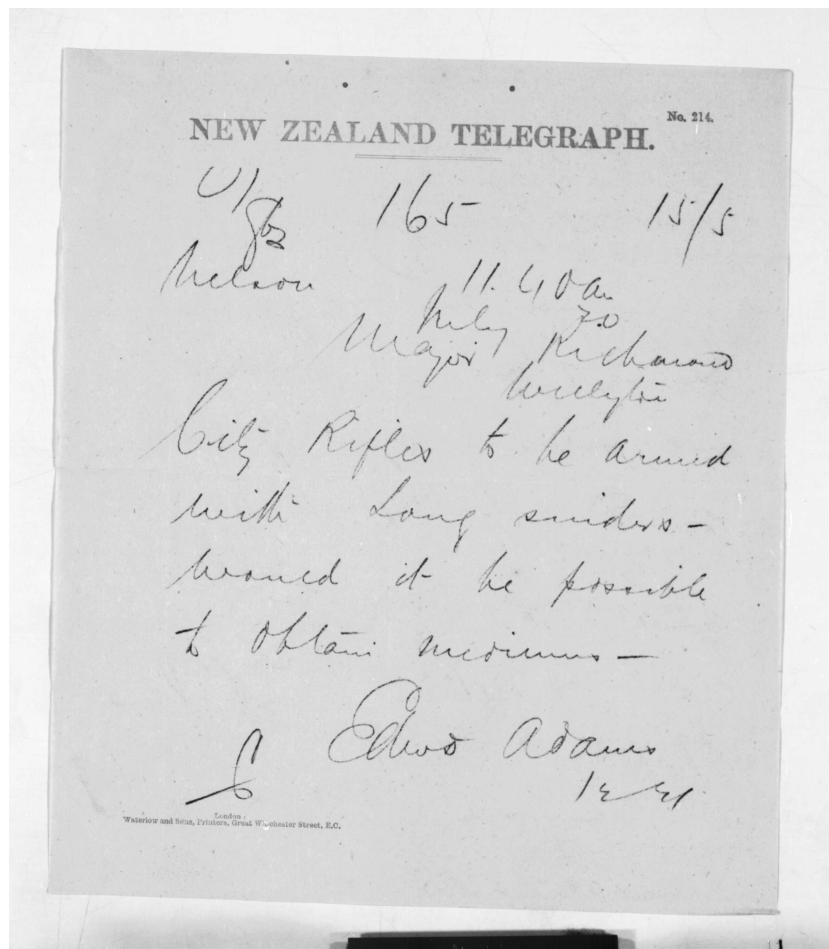 No. 214.
NEW ZEALAND TELEGRAPH.
165 15/5
Nelson 11.40 a
Major Richmond
City Rifles to be armed
with Long sniders —
would it be possible
to obtain mediums —
Edwd Adams
London:
Waterlow and Sons, Printers, Great Winchester Street, E.C.